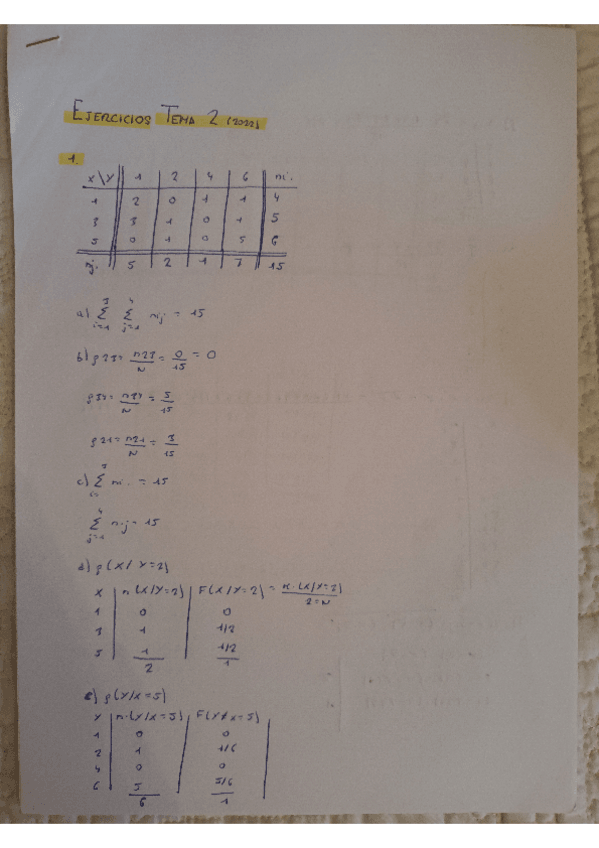 EJERCICIOS TEMA 2 (2022)
1.
X\Y 1 2 4 6 ni.
1 2 0 1 1 4
3 3 1 0 1 5
5 0 1 0 5 6
n.j 5 2 1 7 15
a) Σ Σ nij = 15
b) f23 = n23/N = 0/15 = 0
f34 = n34/N = 5/15
f21 = n21/N = 3/15
c) Σ ni. = 15
Σ n.j = 15
d) f(X/Y=2)
X n(X/Y=2) F(X/Y=2) = n.(X/Y=2)/2=N
1 0 0
3 1 1/2
5 1 1/2
2 1
e) f(Y/X=5)
Y n.(Y/X=5) F(Y/X=5)
1 0 0
2 1 1/6
4 0 0
6 5 5/6
6 1